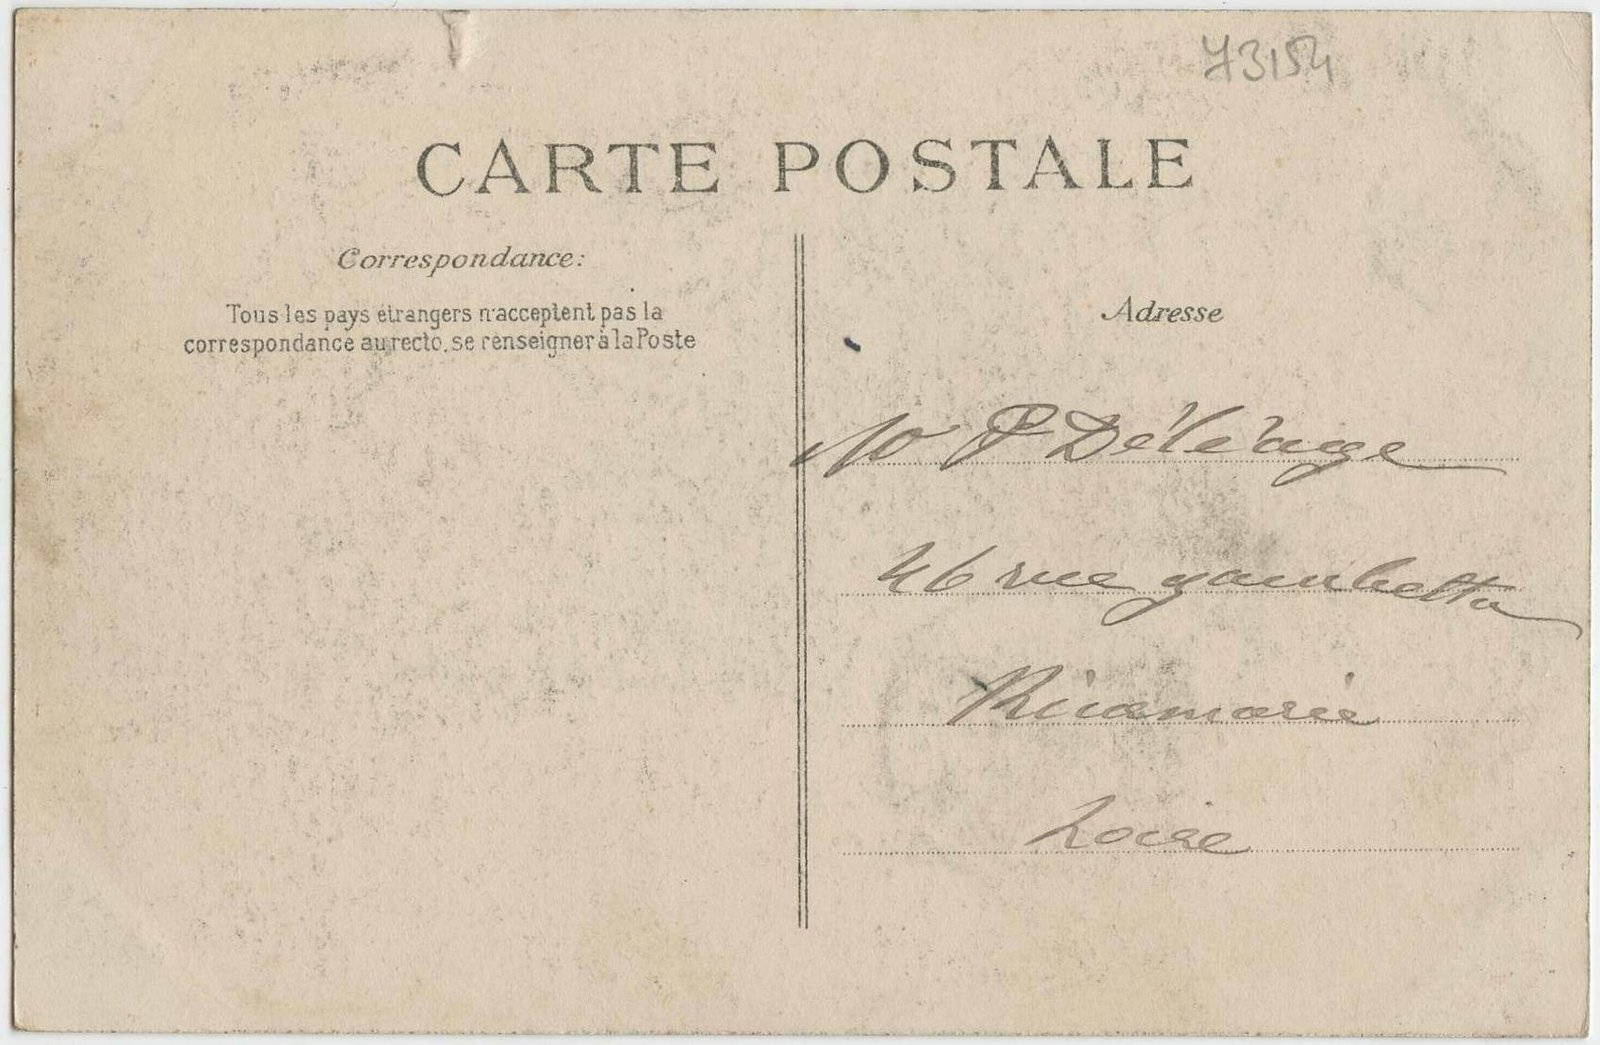 73154
CARTE POSTALE
Correspondance:
Tous les pays étrangers n'acceptent pas la
correspondance au recto, se renseigner à la Poste
Adresse
P Déléage
46 rue gambetta
Ricamarie
Loire